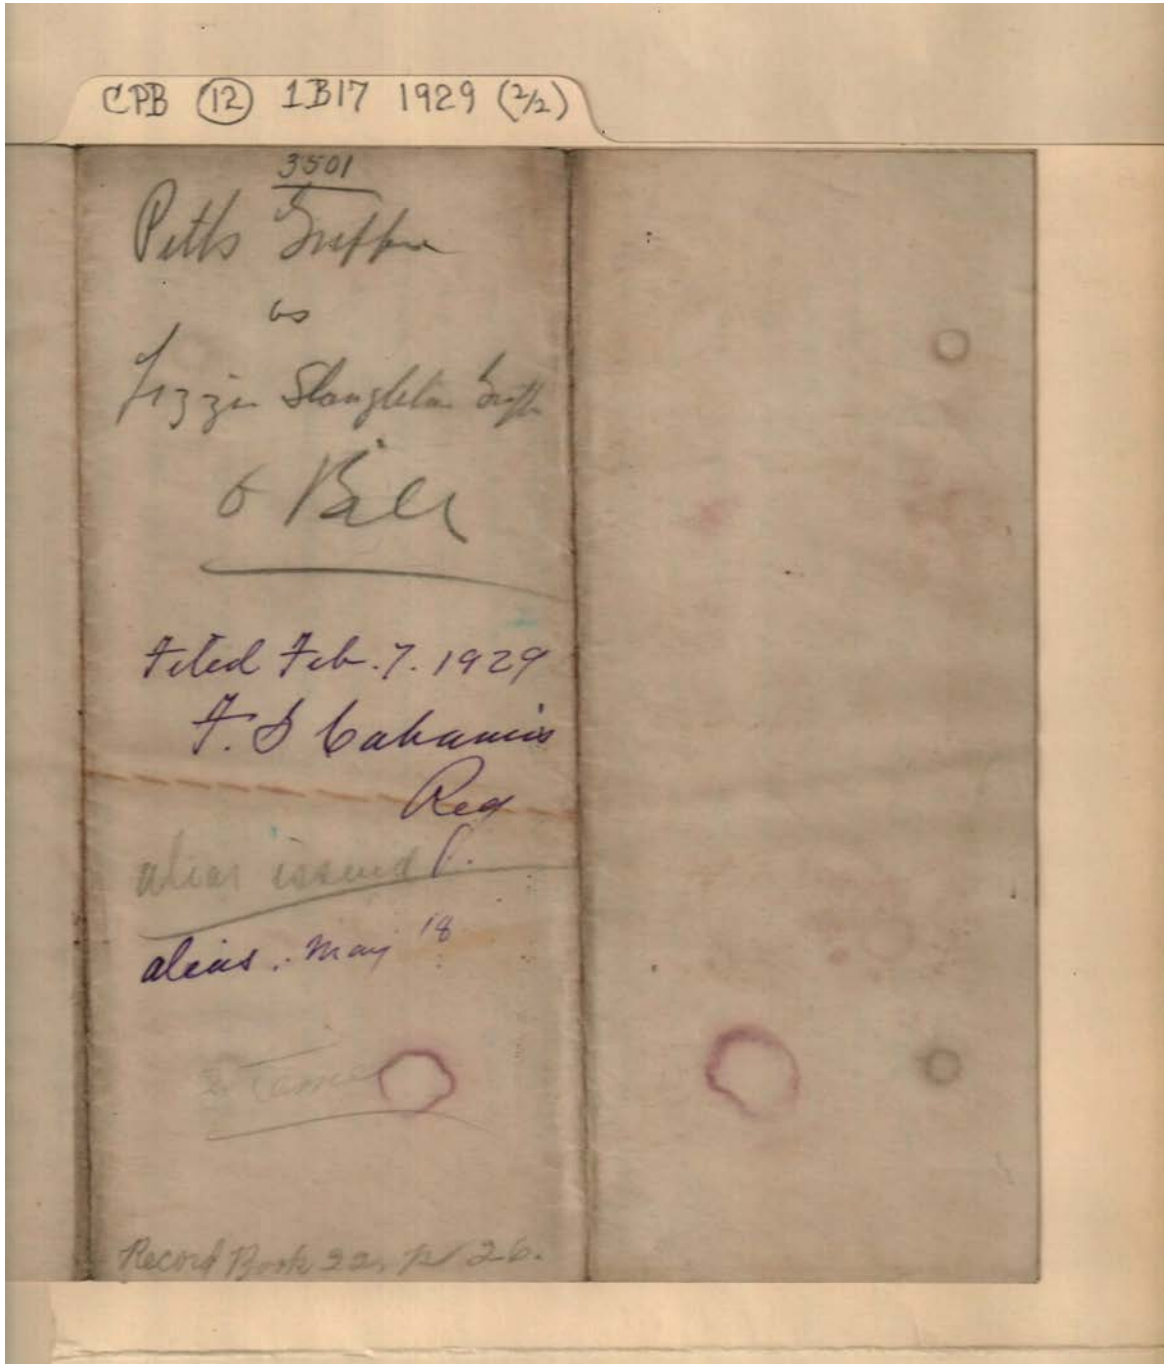 CPB 12 1B17 1929 (2/2)
3501
Pitts Griffin
vs
Lizzie Slaughter Griffin
Bill
Filed Feb. 7. 1929
F. S Cabaniss
Reg
alias issued
alias. May 18
Record Book 22, P 26.